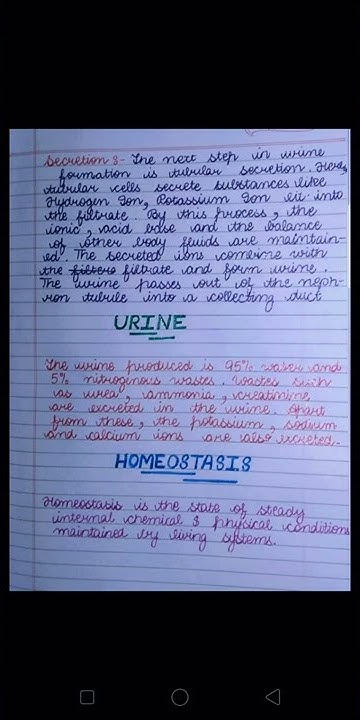 Secretion :- The next step in urine
formation is tubular secretion. Here,
tubular cells secrete substances like
Hydrogen Ion, Potassium Ion etc into
the filtrate. By this process, the
ionic, acid base and the balance
of other body fluids are maintain-
ed. The secreted ions combine with
the filters filtrate and form urine.
The urine passes out of the neph-
ron tubule into a collecting duct
URINE
The urine produced is 95% water and
5% nitrogenous wastes. Wastes such
as urea, ammonia, creatinine
are excreted in the urine. Apart
from these, the potassium, sodium
and calcium ions are also excreted.
HOMEOSTASIS
Homeostasis is the state of steady
internal chemical & physical conditions
maintained by living systems.